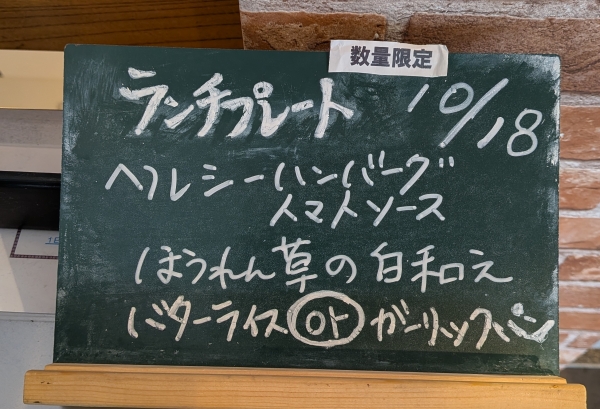 数量限定
ランチプレート 10/18
ヘルシーハンバーグ
トマトソース
ほうれん草の白和え
バターライス or ガーリックパン